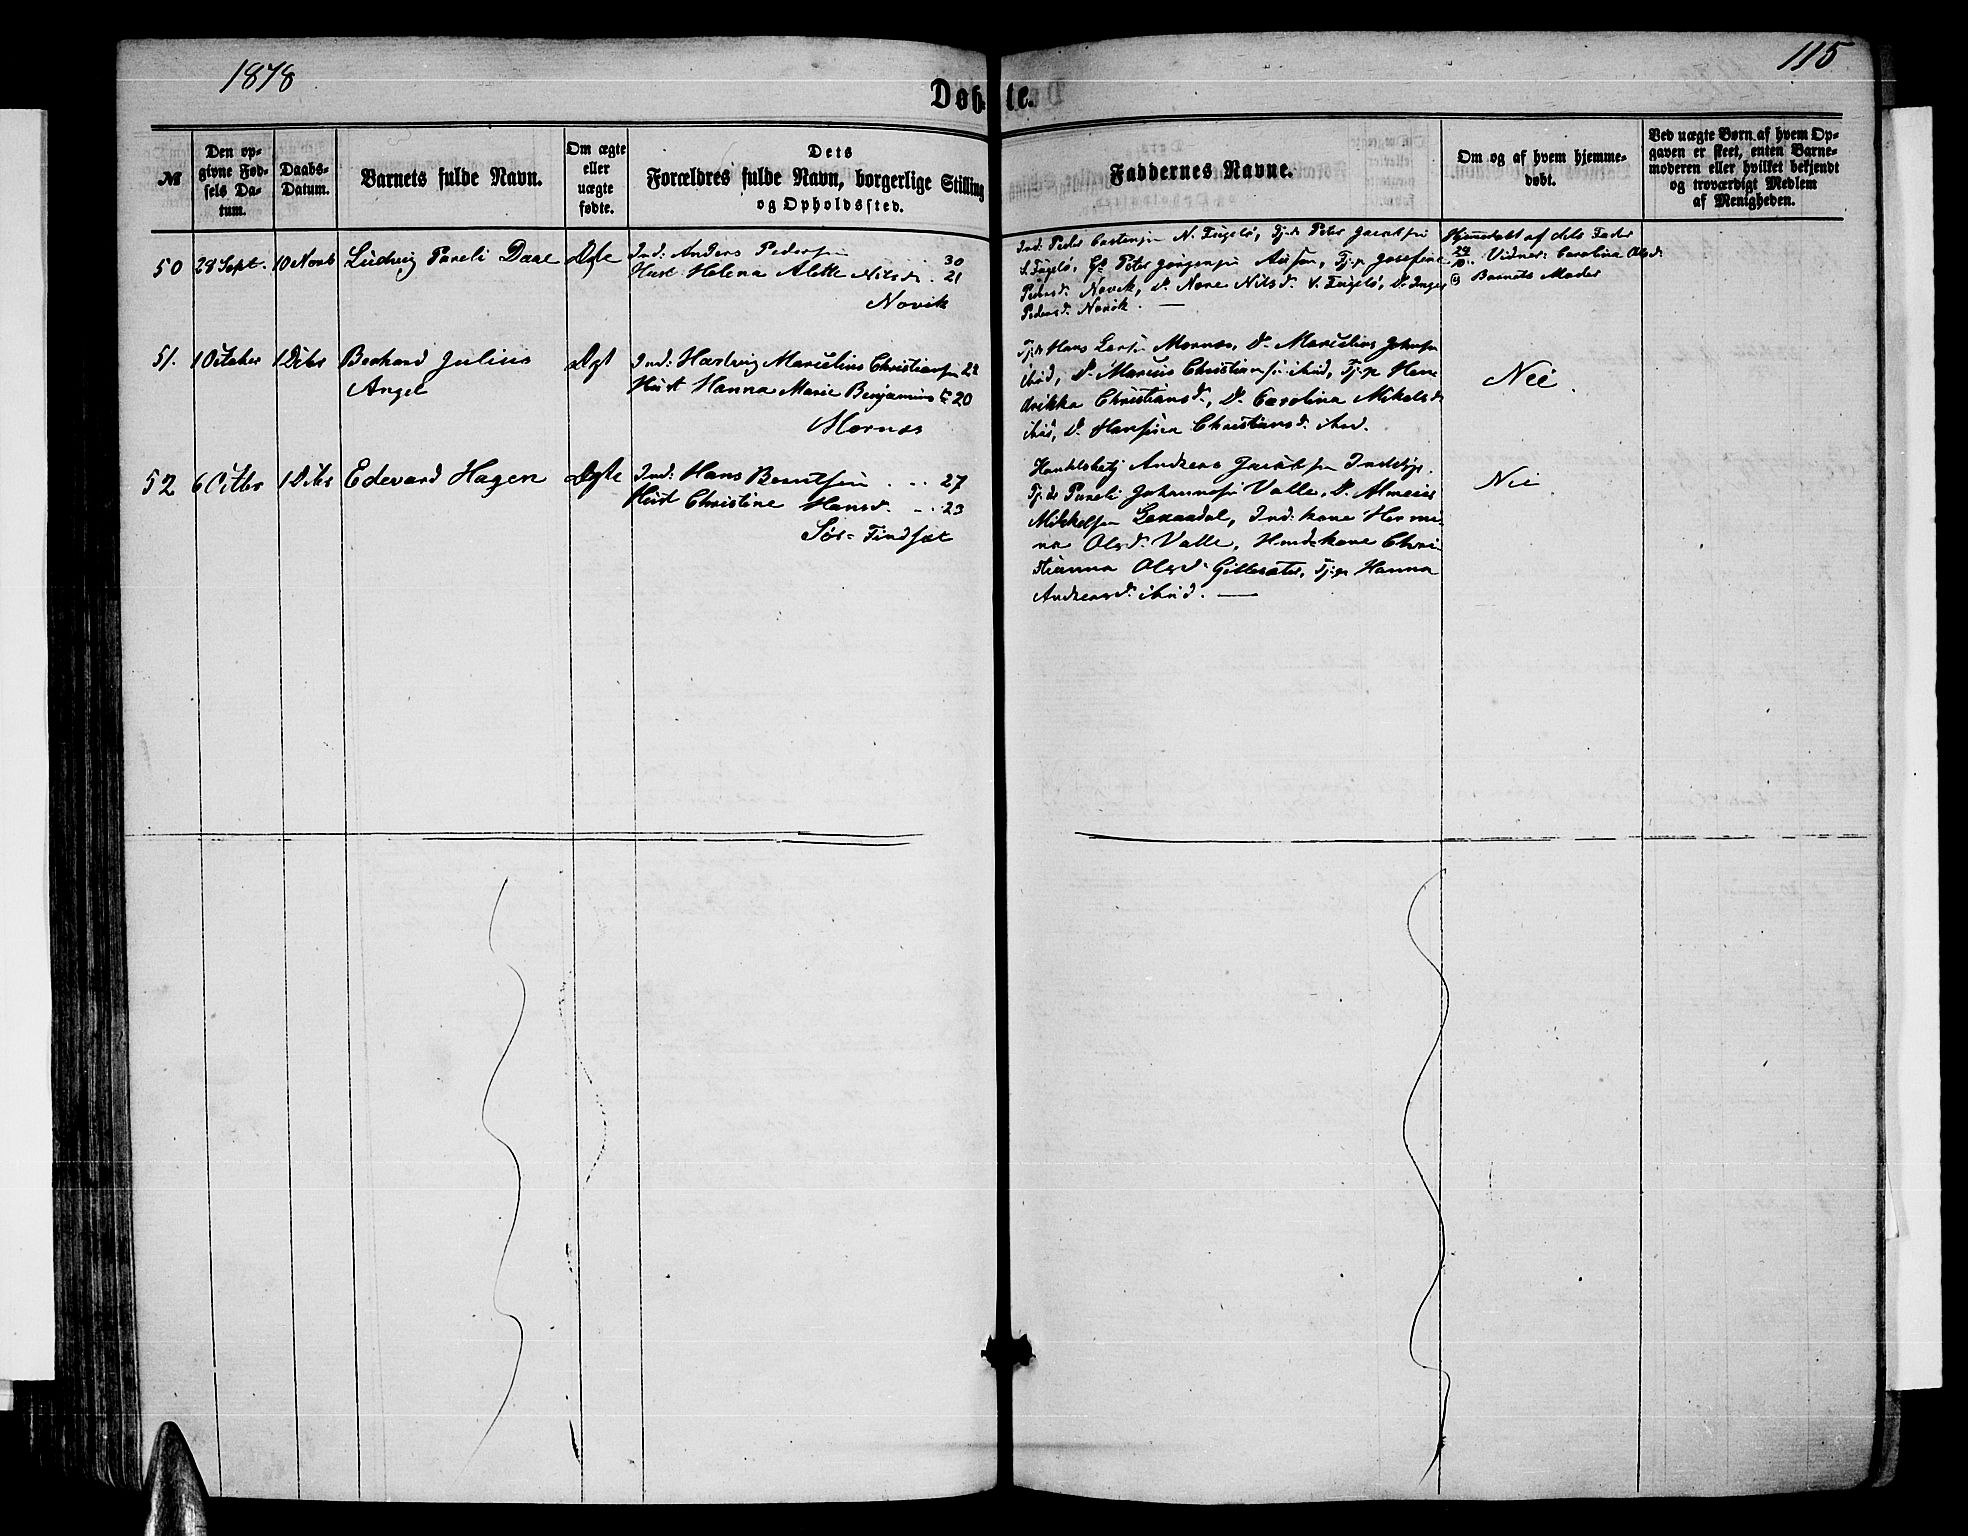 1878
115
Døbte.
№
Den op-
givne Fød-
sels Da-
tum.
Daabs-
Datum.
Barnets fulde Navn.
Om ægte
eller
uægte
født.
Dets
Forældres fulde Navn, borgerlige Stilling
og Opholdssted.
Faddernes Navne.
Om og af hvem hjemme-
døbt.
Ved uægte Børn af hvem Op-
gaven er skeet, enten Barne-
moderen eller hvilket bekjendt
og troværdigt Medlem
af Menigheden.
50 28 Sept. 10 Novb Ludvig Pareli Daae Ægte
Ind: Anders Pedersen 30
Hust Helena Nilsd. 21
Novik
Ind: Peder N. Fugelø, Tj.dr. Peter Jacobsen
S. Fugelø, Peter Jørgensen Tj.p. Josefine
Pedersd. Novik, D. Nilsd. S. Fugelø, D. Inger
Pedersd. Novik.
Hjemedøbt af dets Fader
Vidner: Carolina Olsd.
Barnets Moder
51. 1 October 1 Dcbr Berhard Julius
Angel
Ægt
Ind: Hartvig Marselius Christiansen 22
Hust Hanna Marie Benjamins d. 20
Mornes
Tj.dr Hans Larsen Mornes, D. Marselius Johnsen
ibid, D. Marius Christiansen ibid, Tj.p Hen
drikka Christiansd., D. Carolina Mikelsd
ibid, D. Hansina Christiansd. ibid.
Nei.
52 6 Octbr 1 Dcbr Edevard Hagen Ægte
Ind: Hans Berntsen . . . 27
Hust Christine Hansd. . . 23
Sør-Tindsæt
Handelsbetj Andreas Jacobsen
Tj.dr Pareli Johannesen Valle, D.
Mikkelsen Indkone Hermi
na Olsd. Valle, kone Chri
stianna Olsd. Tj.p Hanna
Andreasd. ibid.
Nei